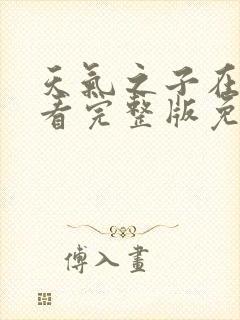 天氣之子在
看完整版免
傅入畫